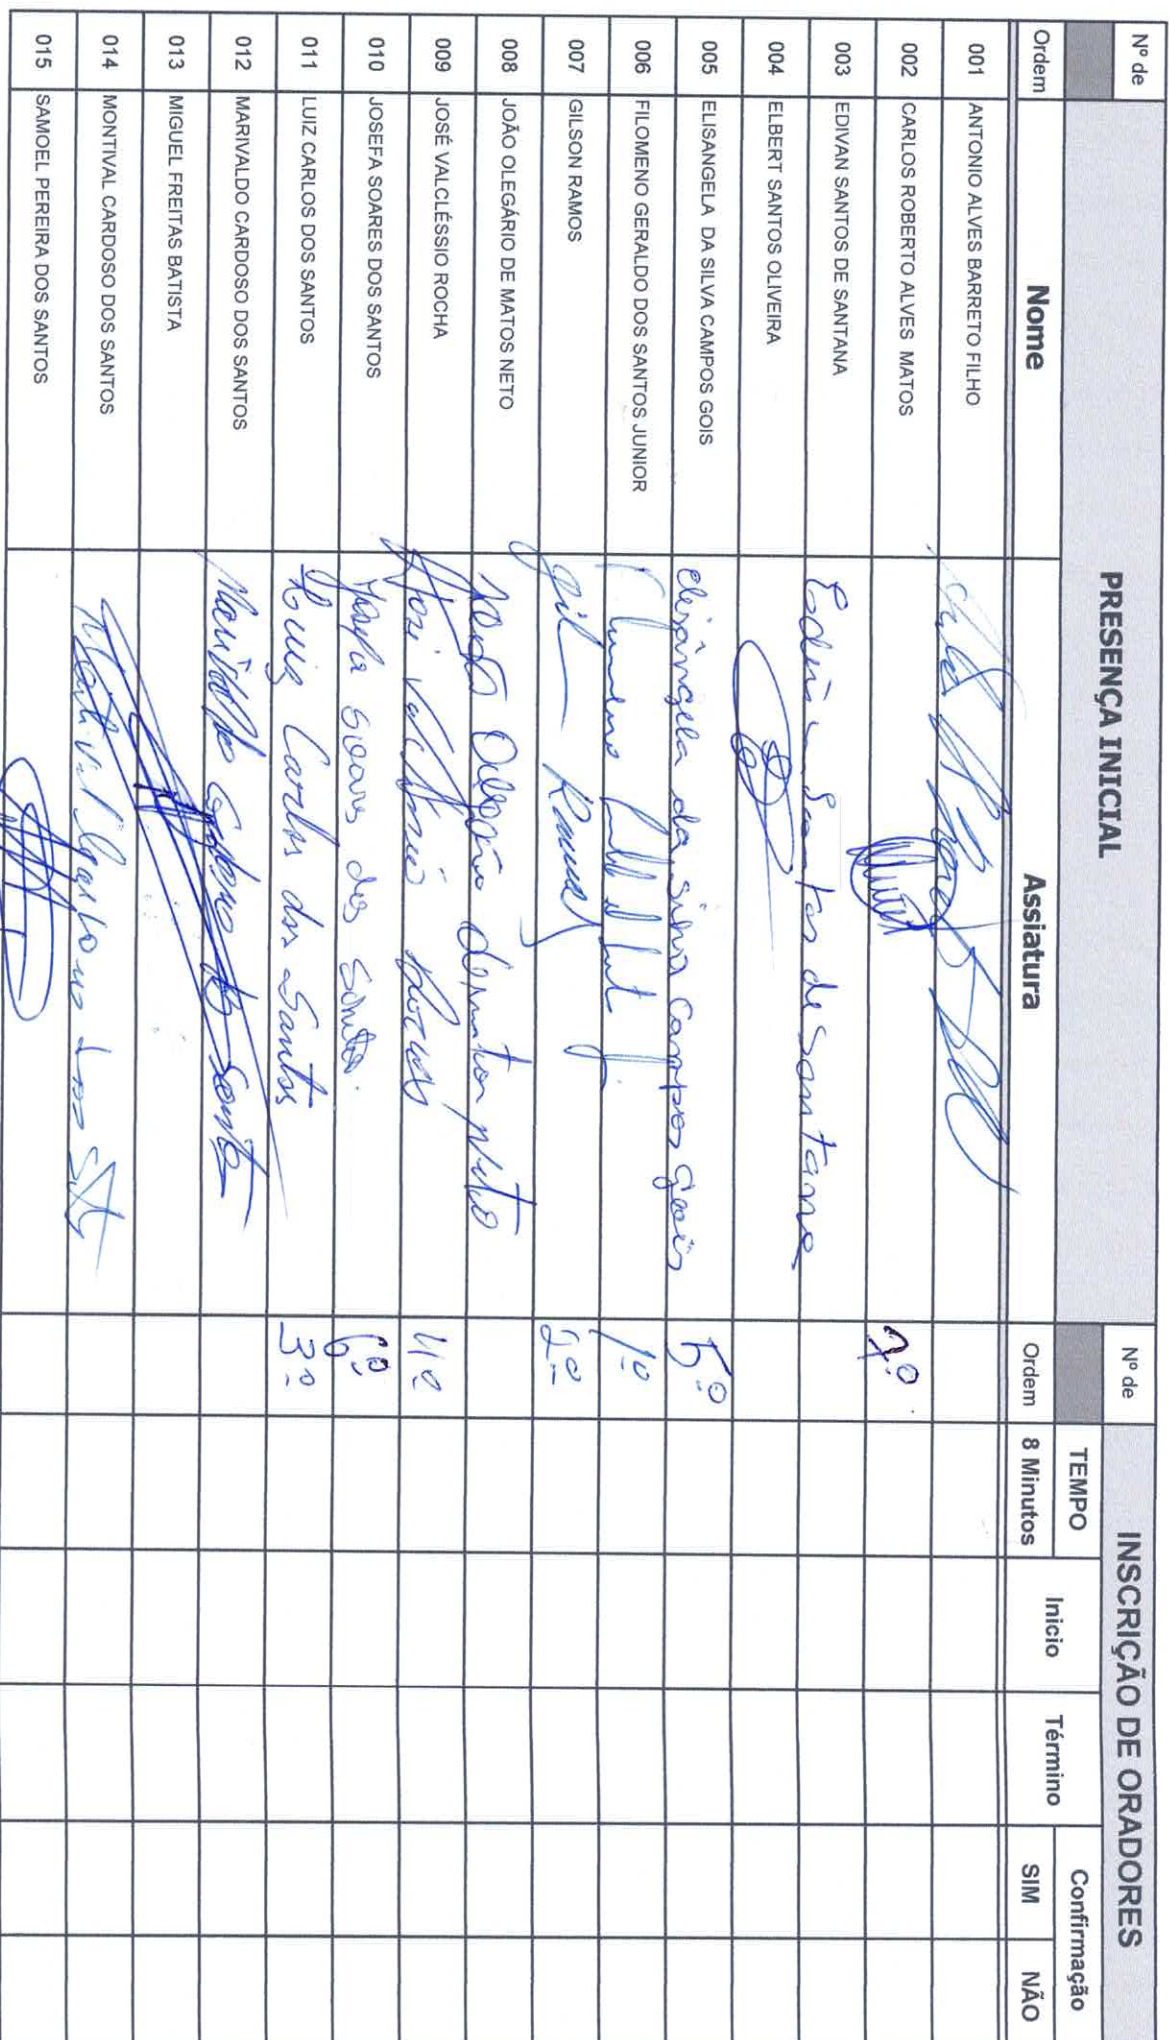 Nº de PRESENÇA INICIAL Nº de INSCRIÇÃO DE ORADORES
TEMPO Confirmação
Ordem Nome Assiatura Ordem 8 Minutos Inicio Término SIM NÃO
001 ANTONIO ALVES BARRETO FILHO
002 CARLOS ROBERTO ALVES MATOS 7º
003 EDIVAN SANTOS DE SANTANA Edivan Santos de Santana
004 ELBERT SANTOS OLIVEIRA
005 ELISANGELA DA SILVA CAMPOS GOIS elisângela da silva Campos gois 5º
006 FILOMENO GERALDO DOS SANTOS JUNIOR 1º
007 GILSON RAMOS Gil Ramos 2º
008 JOÃO OLEGÁRIO DE MATOS NETO João Olegário de matos neto
009 JOSÉ VALCLÉSSIO ROCHA José Valcléssio Rocha 4º
010 JOSEFA SOARES DOS SANTOS Josefa Soares dos Santos. 6º
011 LUIZ CARLOS DOS SANTOS Luiz Carlos dos Santos 3º
012 MARIVALDO CARDOSO DOS SANTOS Marivaldo Cardoso dos Santos
013 MIGUEL FREITAS BATISTA
014 MONTIVAL CARDOSO DOS SANTOS Montival Cardoso dos
015 SAMOEL PEREIRA DOS SANTOS